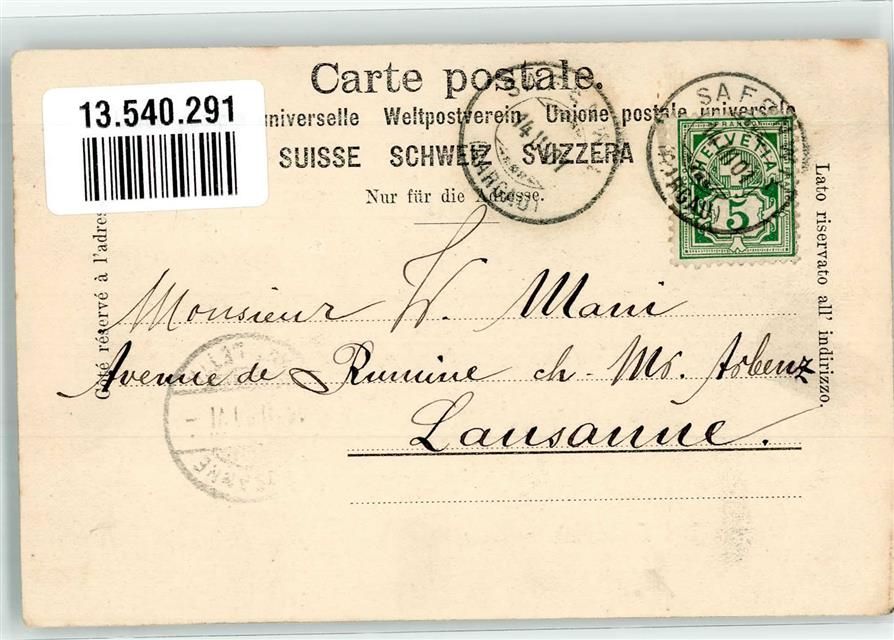 Carte postale.
13.540.291
universelle Weltpostverein Unione postale universale
SUISSE SCHWEIZ SVIZZERA
Nur für die Adresse.
Côté réservé à l'adres
Lato riservato all' indirizzo.
HELVETIA
5
(AARGAU)
Monsieur W. Mani
Avenue de Rumine ch. Mr. Arbenz
Lausanne.